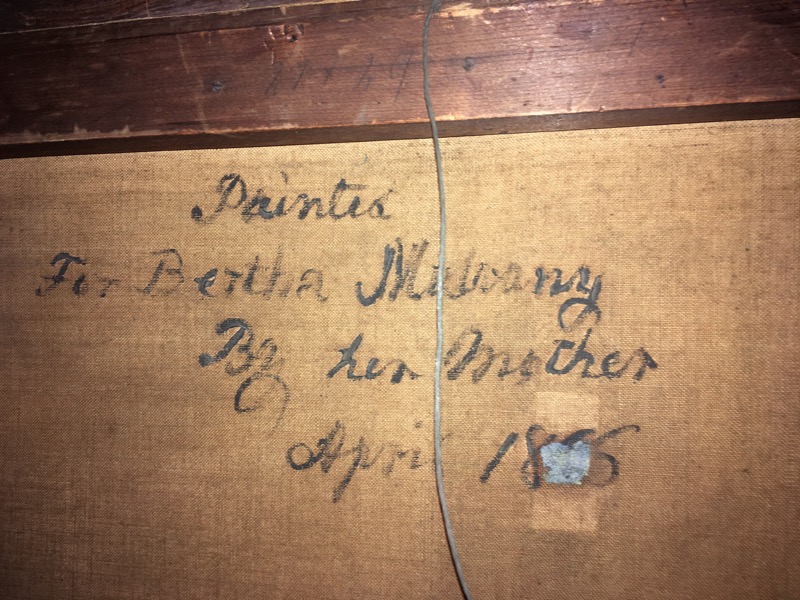 Painted
For Bertha Mulvany
By her Mother
April